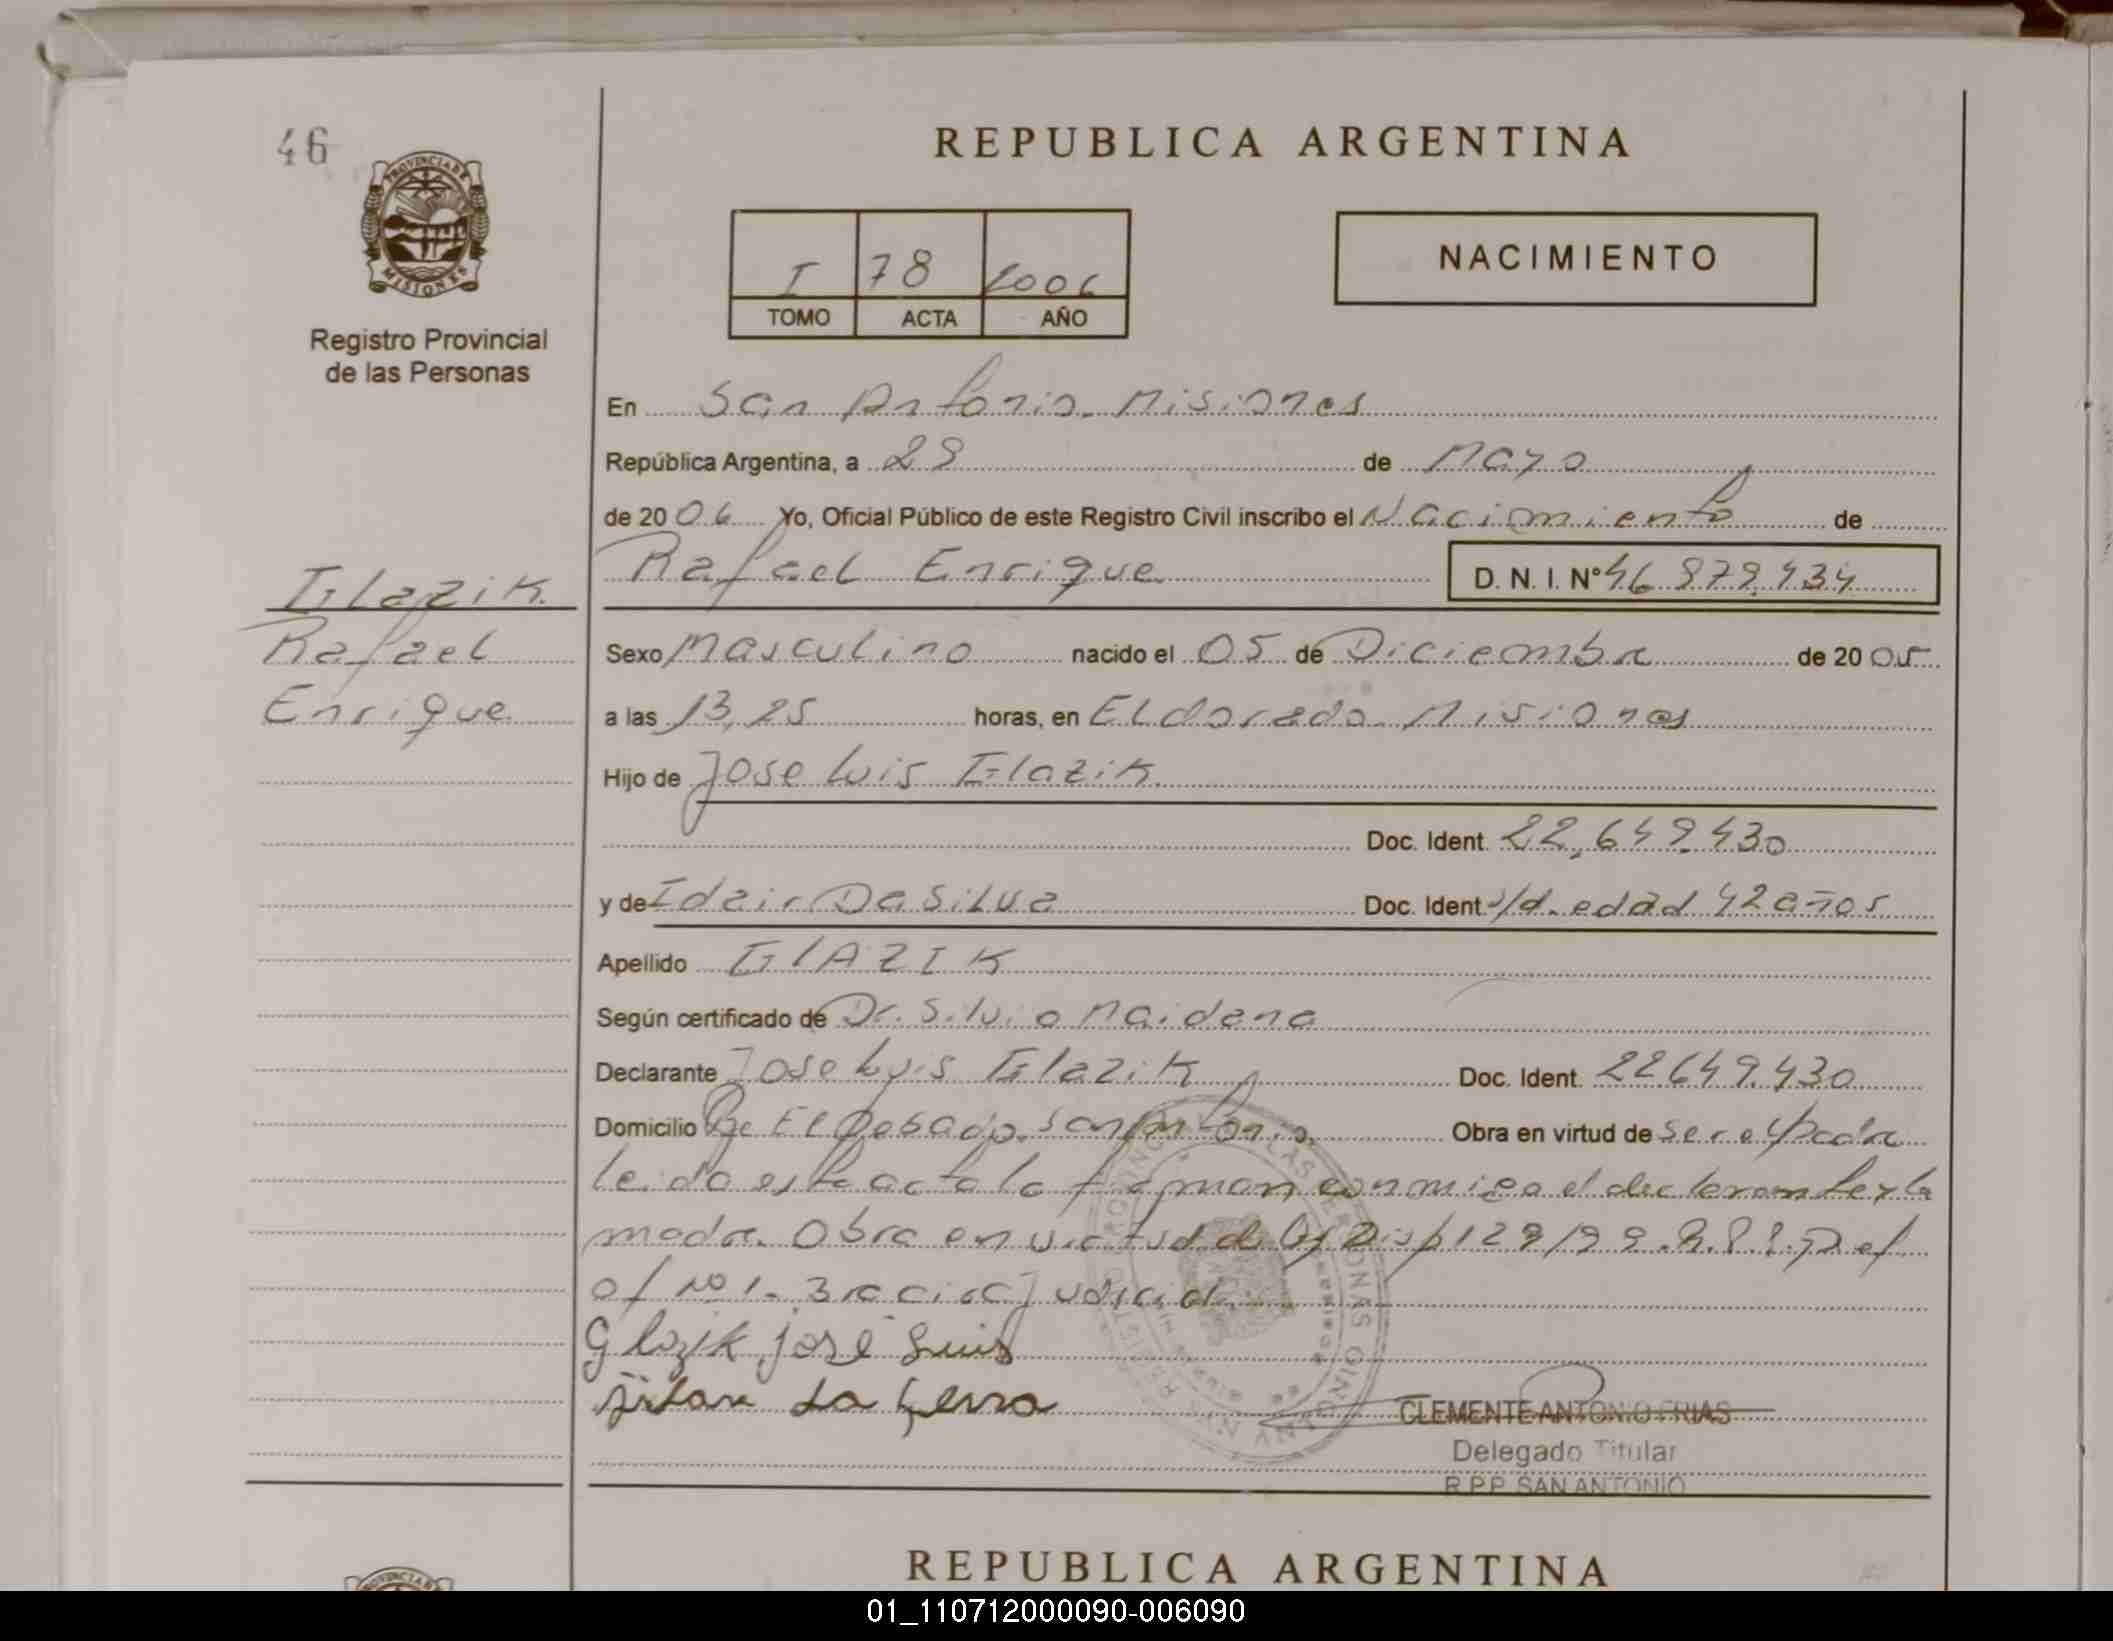 46
REPUBLICA ARGENTINA
PROVINCIA DE
MISIONES
I 78 2006
TOMO ACTA AÑO
NACIMIENTO
Registro Provincial
de las Personas
En San Antonio. Misiones
República Argentina, a 29 de Mayo
de 20 06 Yo, Oficial Público de este Registro Civil inscribo el Nacimiento de
Rafael Enrique D. N. I. Nº 46.979.434
Glazik
Rafael
Enrique
Sexo Masculino nacido el 05 de Diciembre de 20 05
a las 13,25 horas, en Eldorado. Misiones
Hijo de Jose Luis Glazik
Doc. Ident. 22.649.430
y de Idair Da Silva Doc. Ident. s/d. edad 42 años
Apellido GlAZIK
Según certificado de Dr. Silvio Maidana
Declarante Jose Luis Glazik Doc. Ident. 22.649.430
Domicilio Pje El Dorado. San Antonio. Obra en virtud de ser el Padre
leida esta acta la firman conmigo el declarante y la
madre. Obra en virtud de Disp 129/99. R.P.P. Def
of Nº 1. 3ra circ Judicial
Glazik josé Luis
CLEMENTE ANTONIO FRIAS
Delegado Titular
R.P.P. SAN ANTONIO
REPUBLICA ARGENTINA
01_110712000090-006090